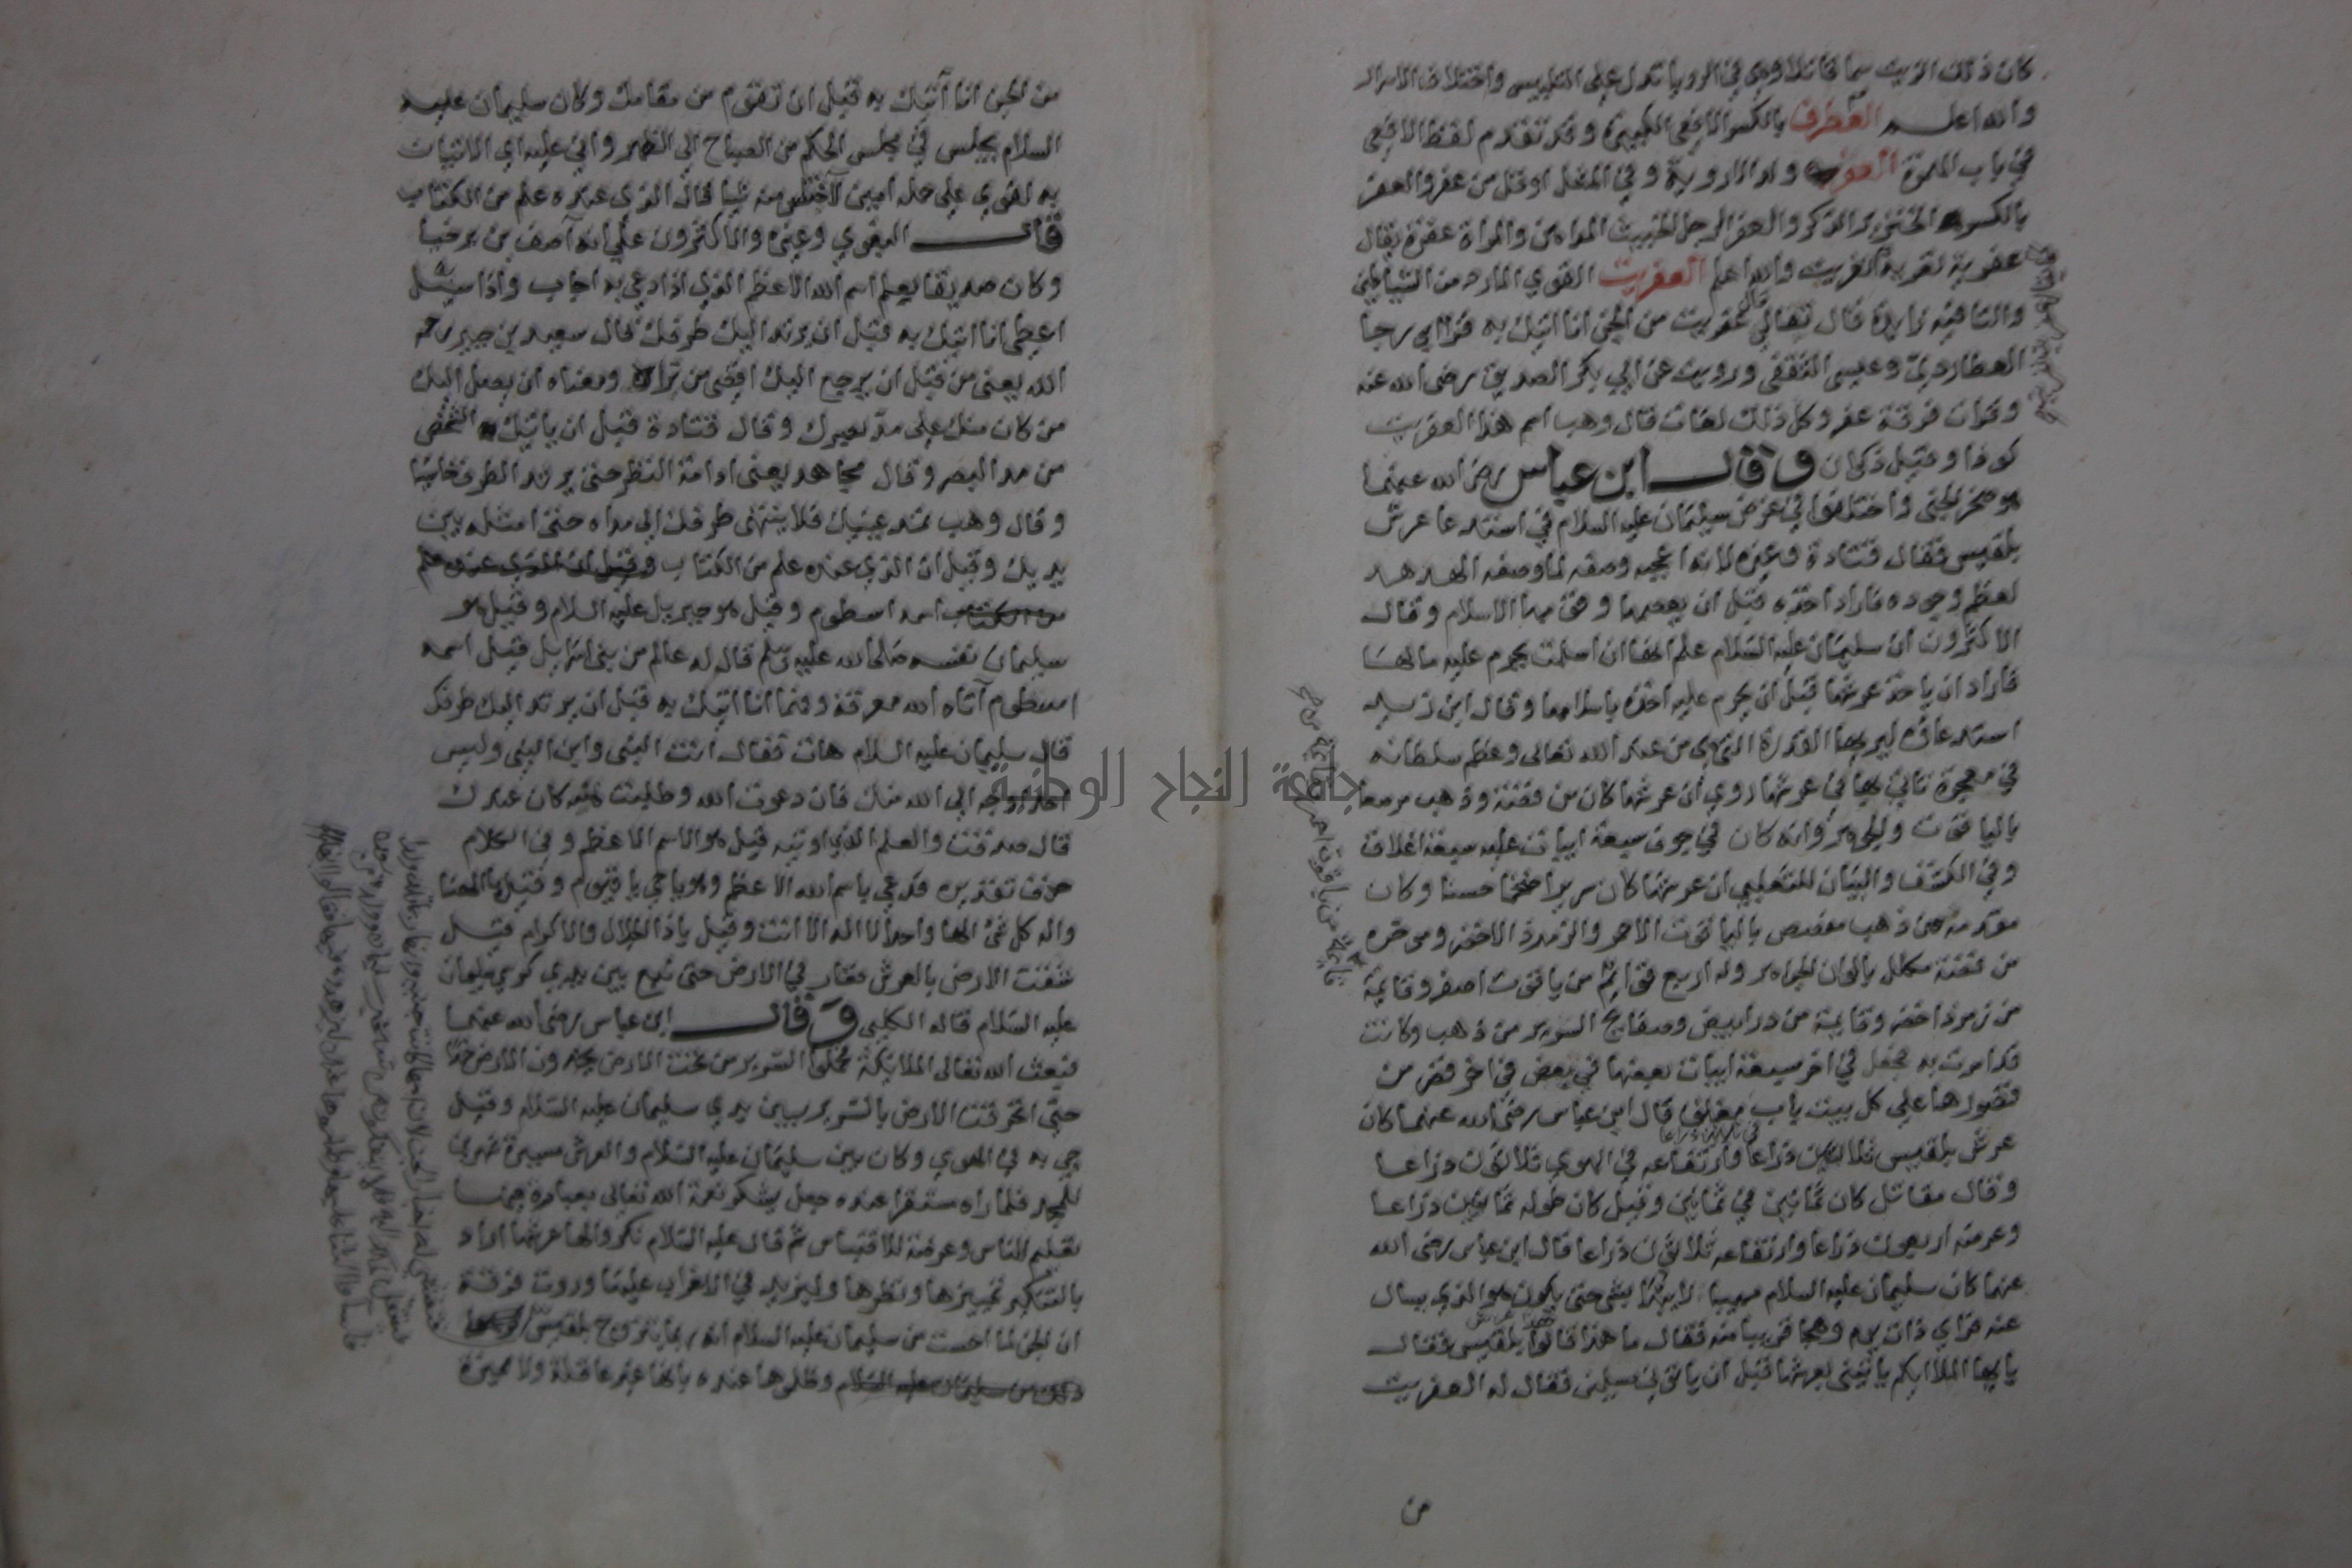 كان ذلك الزيت سما قاتلا وهي في الرويا تدل على التلبيس واختلاف الاسرار
والله اعلم العضرف بالكسر الافعى الكبيرة وقد تقدم لفظ الافعى
في باب الهمزة العفر ولد الاروية وفي المثل اوقل من عفر والعفر
بالكسر الخنزير الذكر والعفر الرجل الخبيث المداهن والمراة عفرة يقال
عفرية نفرية والله اعلم العفريت القوي المارد من الشياطين
والتا فيه زايدة قال تعالى قال عفريت من الجن انا اتيك به قرا ابي رجا
العطاردي وعيسى الثقفي ورويت عن ابي بكر الصديق رضى الله عنه
وقرات فرقة عفر وكل ذلك لغات قال وهب اسم هذا العفريت
كوذا وقيل ذكوان وقال ابن عباس رضى الله عنهما
هو صخر الجنى واختلفوا في غرض سليمان عليه السلام في استدعا عرش
بلقيس فقال قتادة وغيره لانه اعجبه وصفه لما وصفه الهدهد
لعظم وجوده فاراد اخذه قبل ان يعصمها وقومها الاسلام وقال
الاكثرون ان سليمان عليه السلام علم انها ان اسلمت يحرم عليه مالها
فاراد ان ياخذ عرشها قبل ان يحرم عليه اخذه باسلامها وقال ابن زيد
استدعاؤه ليريها القدرة التى هي من عند الله تعالى وعظم سلطانه
في معجزة تاتي بها في عرشها روي ان عرشها كان من فضة وذهب مرصعا
بالياقوت والجوهر وانه كان في جوف سبعة ابيات عليه سبعة اغلاق
وفي الكشف والبيان للثعلبي ان عرشها كان سريرا ضخما حسنا وكان
مقدمه من ذهب مفصص بالياقوت الاحمر والزمرد الاخضر وموخره
من فضة مكلل بالوان الجواهر وله اربع قوايم من ياقوت اصفر وقايمة
من زمرد اخضر وقايمة من در ابيض وصفايح السرير من ذهب وكانت
قد امرت به فجعل في اخر سبعة ابيات بعضها في بعض في اخر قصر من
قصورها على كل بيت باب مغلق قال ابن عباس رضى الله عنهما كان
عرش بلقيس ثلاثين ذراعا في ثلاثين ذراعا وارتفاعه في الهوى ثلاثون ذراعا
وقال مقاتل كان ثمانين في ثمانين وقيل كان طوله ثمانون ذراعا
وعرضه اربعون ذراعا وارتفاعه ثلاثون ذراعا قال ابن عباس رضى الله
عنهما كان سليمان عليه السلام مهيبا لا يبتدا بشى حتى يكون هو الذي يسال
عنه فراي ذات يوم وهجا قريبا منه فقال ما هذا قالوا بلقيس فقال
يا ايها الملا ايكم ياتيني بعرشها قبل ان ياتوني مسلمين فقال له العفريت
من
من الجن انا آتيك به قبل ان تقوم من مقامك وكان سليمان عليه
السلام يجلس في مجلس الحكم من الصباح الى الظهر واني عليه اي الاتيان
به لقوي على حمله امين لا اختلس منه شيا قال الذي عنده علم من الكتاب
قال البغوي وغيره والاكثرون على انه آصف بن برخيا
وكان صديقا يعلم اسم الله الاعظم الذي اذا دعي به اجاب واذا سيل به
اعطى انا اتيك به قبل ان يرتد اليك طرفك قال سعيد بن جبير رحمه
الله يعنى من قبل ان يرجع اليك اقصى من تراه ومعناه ان يصل اليك
من كان منك على مد بصرك وقال قتادة قبل ان ياتيك الشخص
من مد البصر وقال مجاهد يعنى ادامة النظر حتى يرتد الطرف خاسيا
وقال وهب تمد عينيك فلا ينتهى طرفك الى مداه حتى امثله بين
يديك وقيل ان الذي عنده علم من الكتاب وقيل ان الذي عنده علم
من الكتاب اسمه اسطوم وقيل هو جبريل عليه السلام وقيل هو
سليمان نفسه صلى الله عليه وسلم قال له عالم من بنى اسرايل قيل اسمه
اسطوم آتاه الله معرفة وفهما انا اتيك به قبل ان يرتد اليك طرفك
قال سليمان عليه السلام هات فقال انت النبى وابن النبى وليس
احد اوجه الى الله منك فان دعوت الله وطلبت اليه كان عندك
قال صدقت والعلم الذي اوتيه قيل هو الاسم الاعظم وفي الكلام
حذف تقديره فدعى باسم الله الاعظم وهو يا حي يا قيوم وقيل يا الهنا
واله كل شى الها واحدا لا اله الا انت وقيل يا ذا الجلال والاكرام قيل
شقت الارض بالعرش فغار في الارض حتى نبع بين يدي كرسي سليمان
عليه السلام قاله الكلبى وقال ابن عباس رضى الله عنهما
فبعث الله تعالى الملايكة فحملوا السرير من تحت الارض يخدون الارض خدا
حتى انخرقت الارض بالسرير بين يدي سليمان عليه السلام وقيل
جي به في الهوى وكان بين سليمان عليه السلام والعرش مسيرة شهرين
للمجد فلما راه مستقرا عنده جعل يشكر نعمة الله تعالى بعبادة فيها
تعليم للناس وعرضة للاقتباس ثم قال عليه السلام نكروا لها عرشها اراد
بالتنكير تمييزها ونظرها وليزيد في الاغراب عليها وروت فرقة
ان الجن لما احست من سليمان عليه السلام انه ربما يتزوج بلقيس
من سليمان عليه السلام وظلموها عنده بانها غير عاقلة ولا مميزة
جامعة النجاح الوطنية